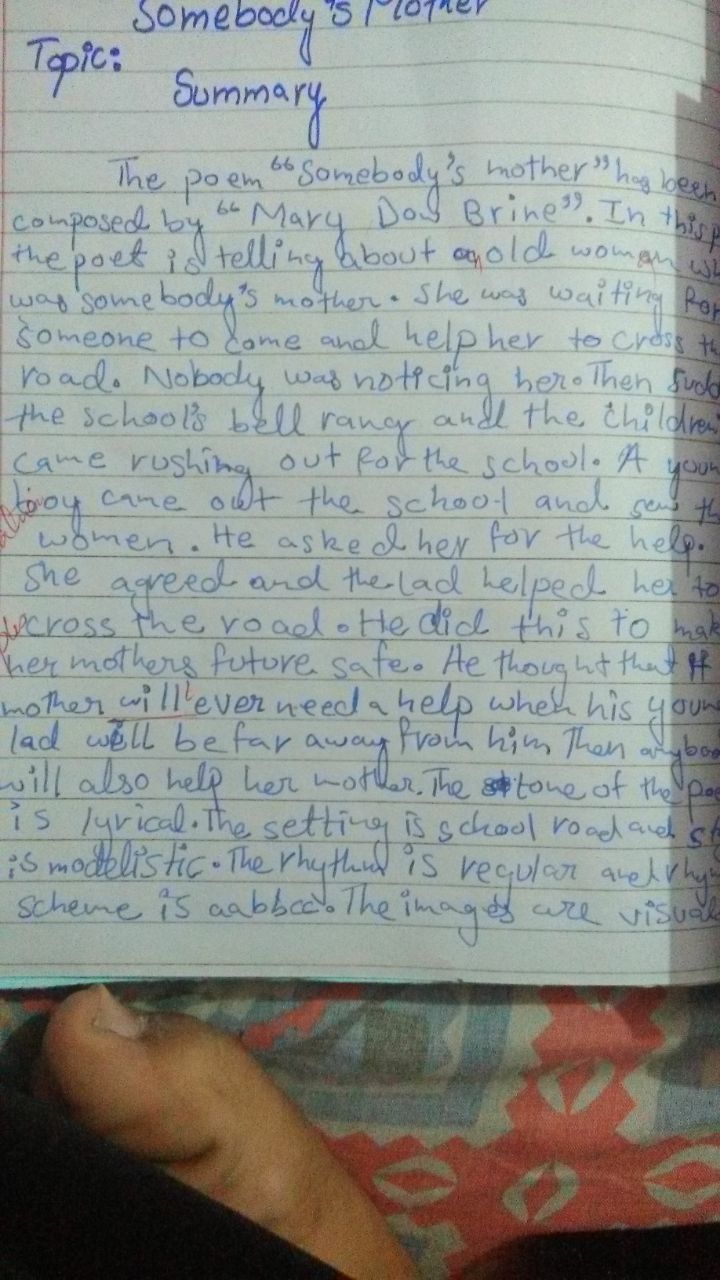 Somebody's Mother
Topic:
Summary
The poem "Somebody's mother" has been
composed by "Mary Dow Brine". In this
the poet is telling about an old woman
was somebody's mother. She was waiting for
someone to come and help her to cross
road. Nobody was noticing her. Then
the school's bell rang and the children
came rushing out for the school. A
boy came out the school and saw
women. He asked her for the help.
She agreed and the lad helped her to
cross the road. He did this to
her mothers future safe. He thought that if
mother will ever need a help when his
lad will be far away from him Then
will also help her mother. The tone of the
is lyrical. The setting is school road and
is modelistic. The rhythm is regular and
scheme is aabbcc. The images are visual